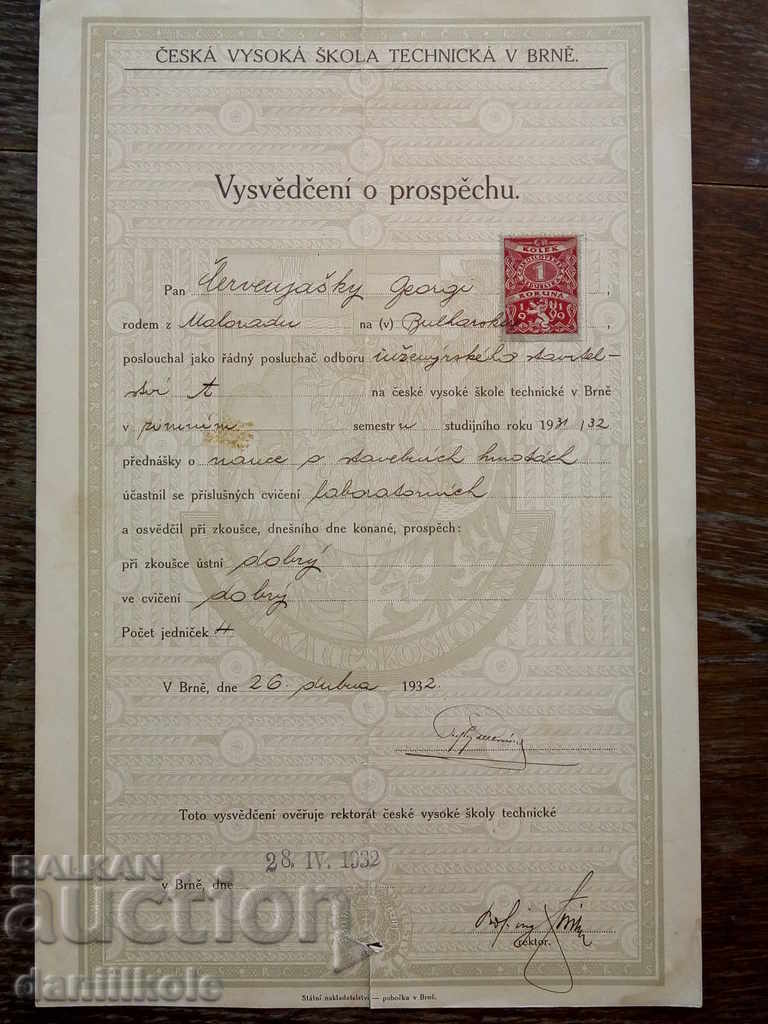 ČESKÁ VYSOKÁ ŠKOLA TECHNICKÁ V BRNĚ.
Vysvědčení o prospěchu.
KOLEK
1
KORUNA
1919
Pan Červenjašky Georgi ,
rodem z Maloradu na (v) Bulharsku ,
poslouchal jako řádný posluchač odboru inženýrského stavitel-
ství A na české vysoké škole technické v Brně
v zimním semestru studijního roku 1931/32
přednášky o nauce o stavebních hmotách
účastnil se příslušných cvičení laboratorních
a osvědčil při zkoušce, dnešního dne konané, prospěch:
při zkoušce ústní dobrý
ve cvičení dobrý
Počet jedniček
V Brně, dne 26. dubna 1932.
Toto vysvědčení ověřuje rektorát české vysoké školy technické
v Brně, dne 28. IV. 1932
rektor.
Státní nakladatelství — pobočka v Brně.
BALKAN
auction
daniilkole